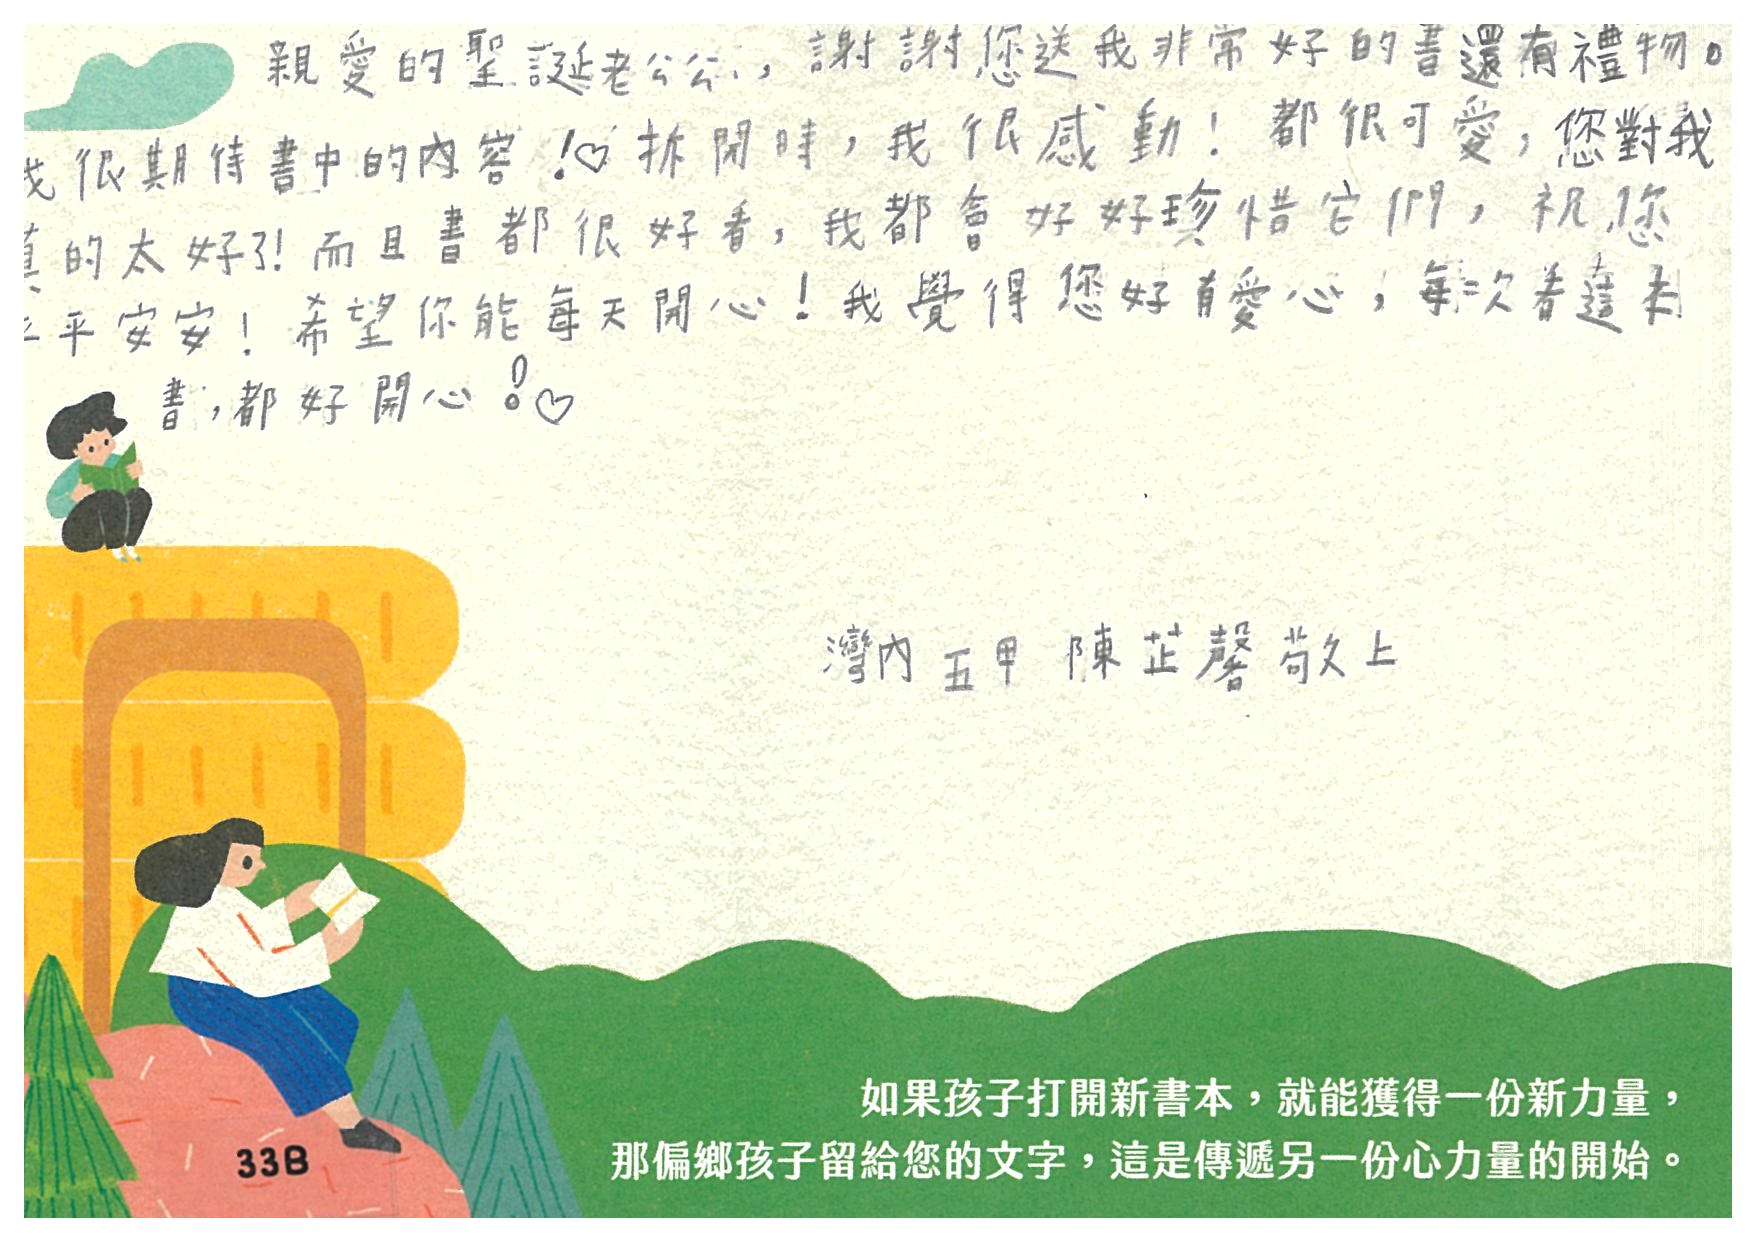 親愛的聖誕老公公，謝謝您送我非常好的書還有禮物。
我很期待書中的內容！♡拆開時，我很感動！都很可愛，您對我
真的太好了！而且書都很好看，我都會好好珍惜它們，祝您
平平安安！希望你能每天開心！我覺得您好有愛心，每次看這本
書，都好開心！♡
灣內五甲 陳芷馨敬上
如果孩子打開新書本，就能獲得一份新力量，
那偏鄉孩子留給您的文字，這是傳遞另一份心力量的開始。
33B